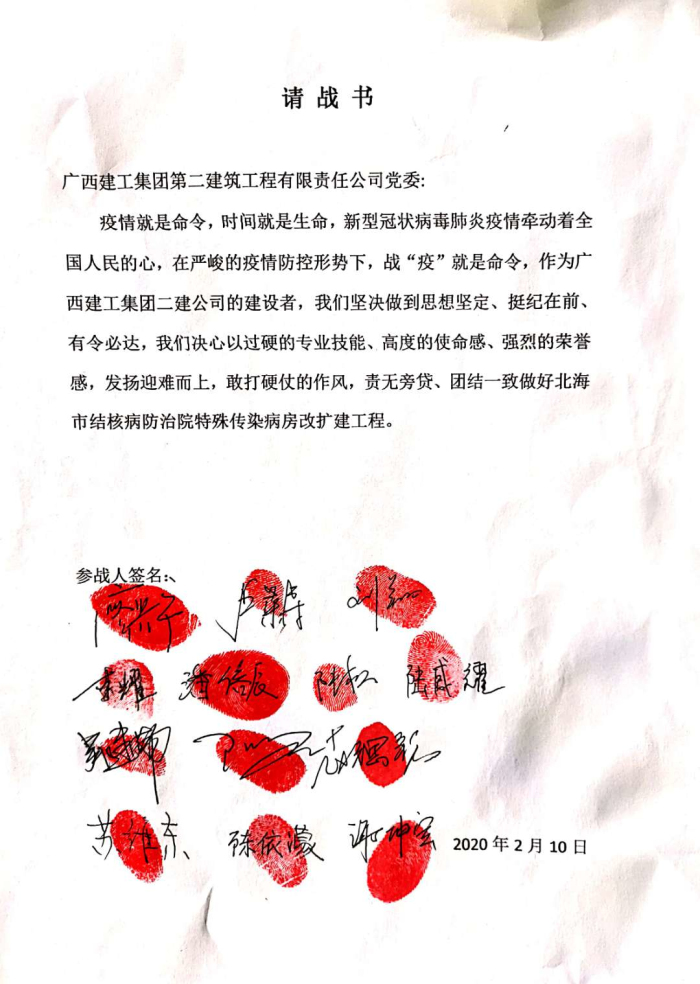 请战书
广西建工集团第二建筑工程有限责任公司党委:
疫情就是命令，时间就是生命，新型冠状病毒肺炎疫情牵动着全
国人民的心，在严峻的疫情防控形势下，战“疫”就是命令，作为广
西建工集团二建公司的建设者，我们坚决做到思想坚定、挺纪在前、
有令必达，我们决心以过硬的专业技能、高度的使命感、强烈的荣誉
感，发扬迎难而上，敢打硬仗的作风，责无旁贷、团结一致做好北海
市结核病防治院特殊传染病房改扩建工程。
参战人签名:、
李耀 陆松 陆盛耀
苏维东 陈依濛 谢坤宝 2020年2月10日